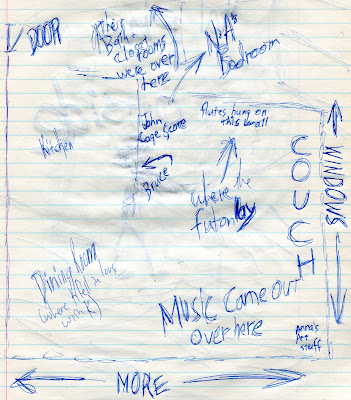 DOOR
Their
Bath,
closet
rooms
were over
here
N+A's
Bedroom
John
Cage Score
flutes hung on
this wall
Kitchen
Bruce
where the
futon lay
COUCH
WINDOWS
Dining Room
(where A fell in love
with
Music Came out
over here
Anna's
Art
stuff
MORE